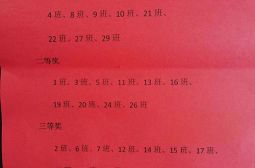 4 班、8 班、9 班、10 班、21 班、
22 班、27 班、29 班
二等奖
1 班、3 班、5 班、11 班、13 班、16 班、
19 班、20 班、24 班、26 班
三等奖
2 班、6 班、7 班、12 班、14 班、15 班、17 班、